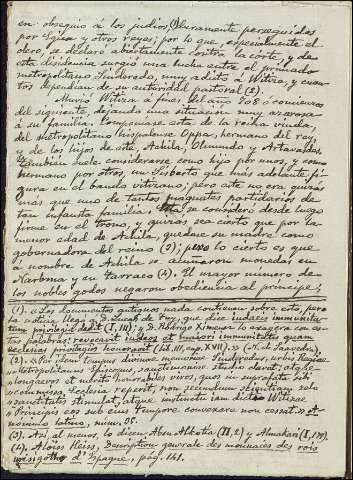 en obsequio á los judíos, duramente perseguidos
por Egica y otros reyes; por lo que especialmente el
clero, se declaró abiertamente contra la corte, y de
esta disidencia surgió una lucha entre el primado
metropolitano Sinderedo, muy adicto á Witiza, y cuan-
tos dependían de su autoridad pastoral (2).
Murió Witiza á fines del año 708 ó comienzos
del siguiente, dejando una situación muy azarosa
á su familia. Componíase esta de la Reina viuda,
del Metropolitano hispalense Oppa, hermano del rey
y de los hijos de este, Achila, Olmundo y Artavasdes.
También suele considerarse como hijo por unos, y como
hermano por otros, un Sisberto que más adelante fi-
gura en el bando witizano; pero este no era quizás
más que uno de tantos magnates partidarios de
tan infausta familia. Esta se consideró desde luego
firme en el trono, y quizás sea cierto que por la
menor edad de Achila, quedase su madre como
gobernadora del reino (3); pero lo cierto es que
a nombre de Achila se acuñaron monedas en
Narbona y en Tarraco (4). El mayor número de
los nobles godos negaron obediencia al príncipe;
(1). Los documentos antiguos nada contienen sobre esto, pero
la noticia llegó á D. Lucas de Tuy, que dice iudaeis immunita-
tum privilegia dedit (I, III); y D. Rodrigo Ximenez lo exagera con es-
tas palabras: revocavit iudeos et maioris immunitatis quam
ecclesias privilegiis honoravit (Lib. III, cap. XVI).
(2). Per idem tempus divinae memoriae Sinderedus, urbis Regiae
Metropolitanus Episcopus, sanctimoniae studio claret, atque
longaevos et merito honorabiles viros, quos in suprafata sibi
commissa Ecclesia reperit, non secundum scientiam zelo
sanctitatis stimulat, atque instinctu iam dicti Witizae
Principis eos sub eius tempore convexare non cessat.
num. 35.
(3). Así, al menos, lo dicen Aben Alkotia (II, 2) y Almakari
(4). Aloïss Heiss, Description generale des monnaies des rois
wisigoths d'Espagne, pág. 141.